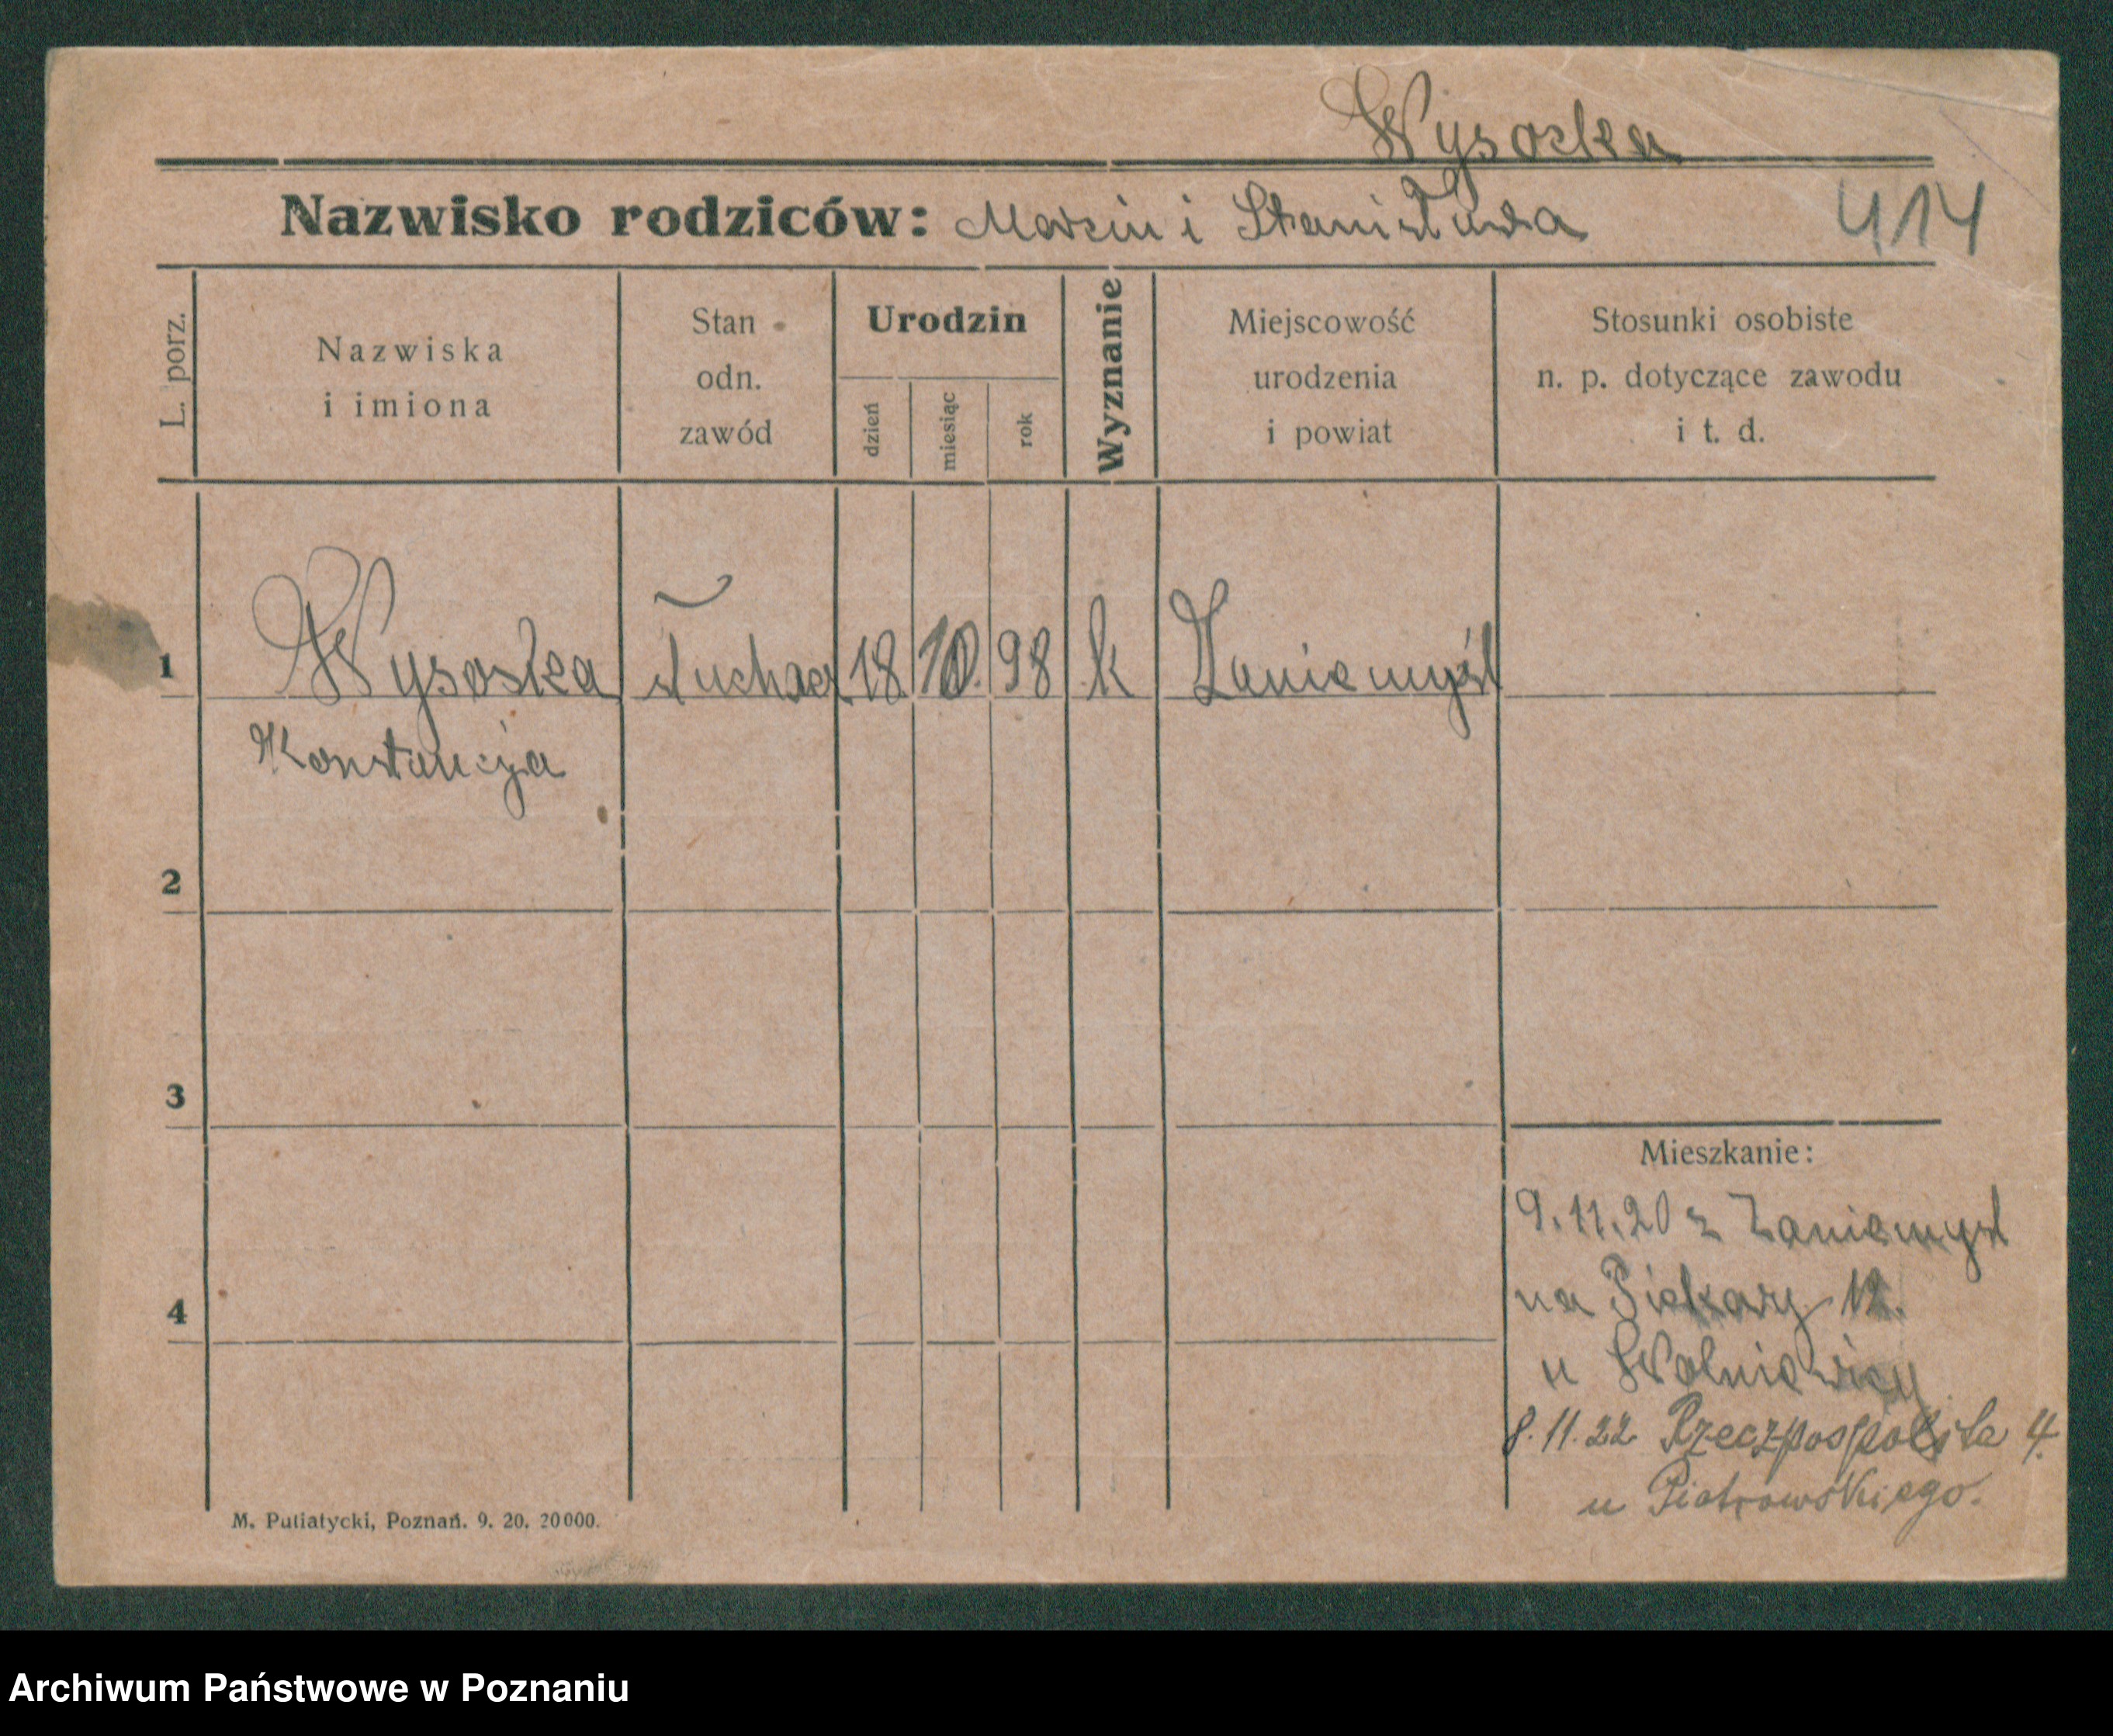 Wysocka
Nazwisko rodziców: Marcin i Stanisława
414
L. porz.
Nazwiska
i imiona
Stan
odn.
zawód
Urodzin
dzień
miesiąc
rok
Wyznanie
Miejscowość
urodzenia
i powiat
Stosunki osobiste
n. p. dotyczące zawodu
i t. d.
1 Wysocka 18. 10. 98 k Zaniemyśl
Konstancja
2
3
Mieszkanie:
9.11.20 z Zaniemysl
na Piekary 12.
4
u
8.11.22 Rzeczpospolita 4.
u Piotrowskiego.
M. Putiatycki, Poznań. 9. 20. 20000.
Archiwum Państwowe w Poznaniu